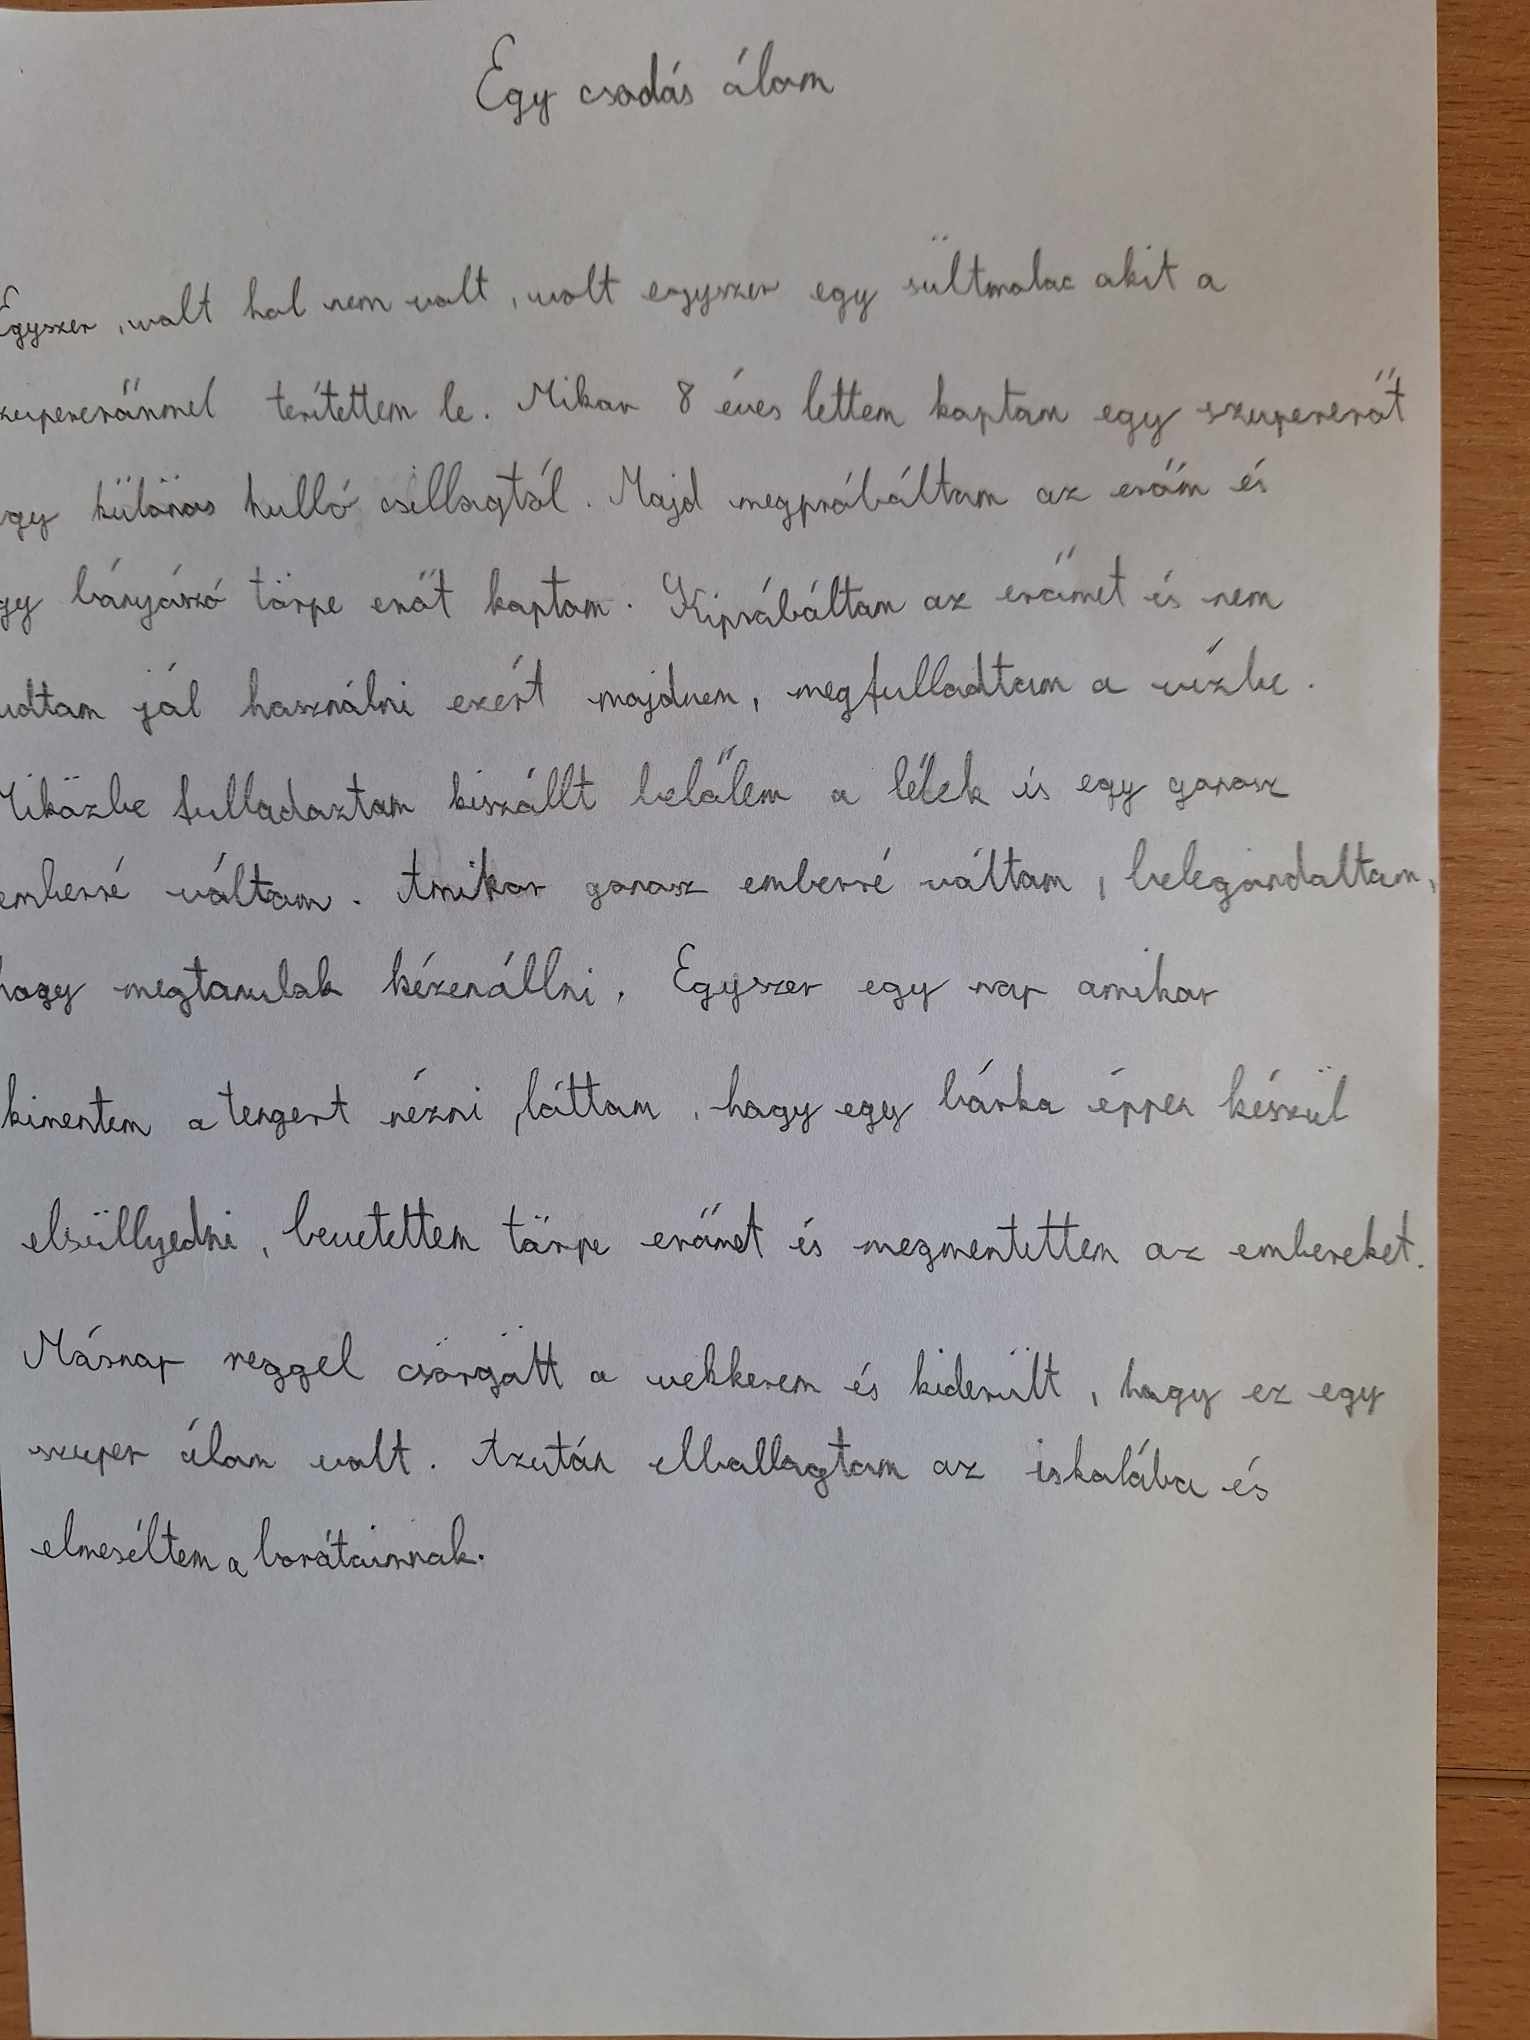 Egy csodás álom
Egyszer, volt hol nem volt, volt egyszer egy sültmalac akit a
szupererőmmel terítettem le. Mikor 8 éves lettem kaptam egy szupererőt
egy különös hulló csillagtól. Majd megpróbáltam az erőm és
egy bányászó törpe erőt kaptam. Kipróbáltam az erőmet és nem
tudtam jól használni ezért majdnem, megfulladtam a vízbe.
Miközbe fulladoztam kiszállt belőlem a lélek és egy gonosz
emberré váltam. Amikor gonosz emberré váltam, belegondoltam,
hogy megtanulok kézenállni. Egyszer egy nap amikor
kimentem a tengert nézni, láttam, hogy egy bárka éppen készül
elsüllyedni, bevetettem törpe erőmet és megmentettem az embereket.
Másnap reggel csörgött a vekkerem és kiderült, hogy ez egy
szuper álom volt. Azután elballagtam az iskolába és
elmeséltem a barátaimnak.